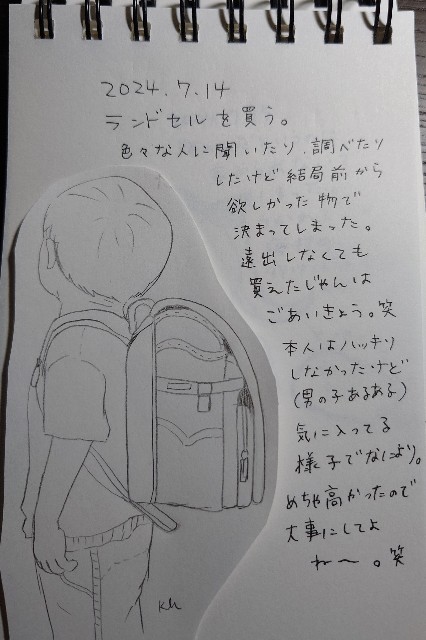 2024.7.14
ランドセルを買う。
色々な人に聞いたり、調べたり
したけど結局前から
欲しかった物で
決まってしまった。
遠出しなくても
買えたじゃんは
ごあいきょう。笑
本人はハッキリ
しなかったけど
(男の子あるある)
気に入ってる
様子でなにより。
めちゃ高かったので
大事にしてよ
ね〜。笑
kh